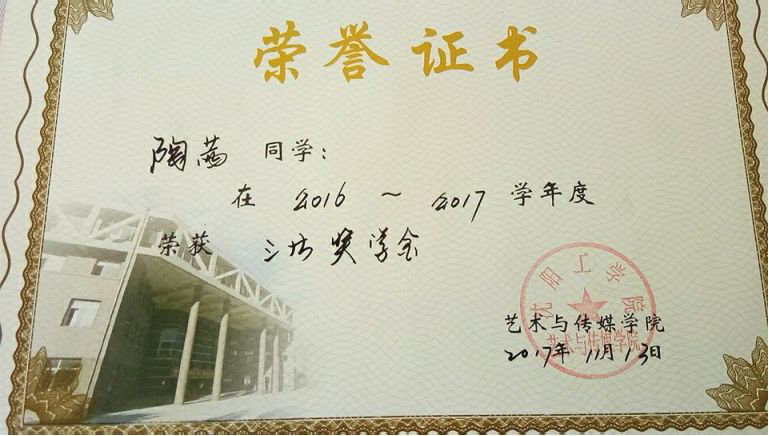 荣誉证书
陶 同学:
在 2016 ~ 2017 学年度
荣获 三等奖学金
沈阳工学院
艺术与传媒学院
艺术与传媒学院
2017年 11月 13日